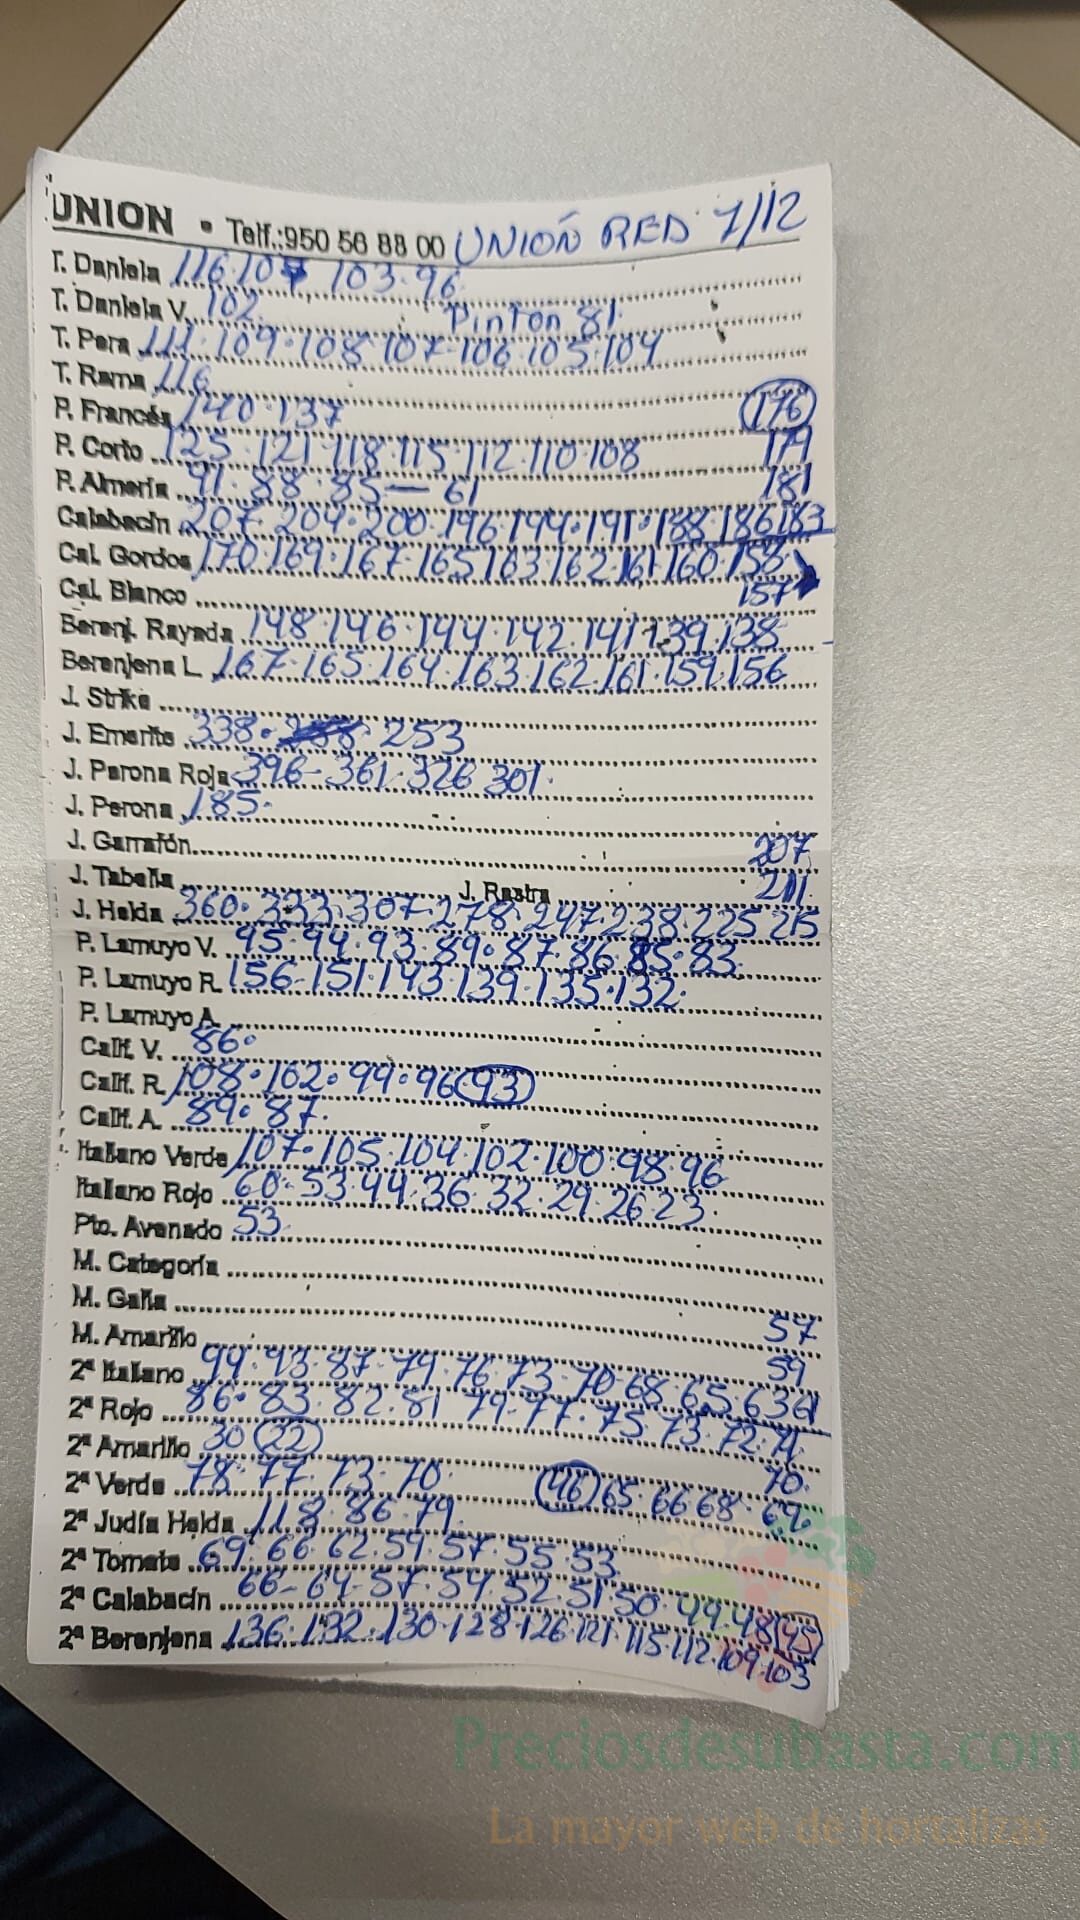 UNION • Telf.:950 56 88 00 UNIÓN RED 7/12
T. Daniela 116·107 103·96
T. Daniela V. 102 Pinton 81
T. Pera 111·109·108·107·106·105·104
T. Rama 116
P. Francés 140·137 176
P. Corto 125·121·118·115·112·110·108 179
P. Almería 91·88·85— 61 181
Calabacín 207·204·200·196·194·191·188·186 183
Cal. Gordos 170·169·167·165·163·162·161·160·158
Cal. Blanco 157
Berenj. Rayada 148·146·144·142·141·139·138
Berenjena L 167·165·164·163·162·161·159·156
J. Strike
J. Emerite 338· 253
J. Perona Roja 396-361·326 301·
J. Perona 185·
J. Garrafón 207
J. Tabella J. Rastra 211
J. Helda 360·333·307·278·247·238·225 215
P. Lamuyo V. 95·94·93·89·87·86·85·83
P. Lamuyo R. 156-151·143·139·135·132·
P. Lamuyo A.
Calif. V. 86·
Calif. R. 108·102·99·96 93
Calif. A. 89·87·
Italiano Verde 107·105·104·102·100·98·96
Italiano Rojo 60·53·44·36·32·29·26·23
Pto. Avenado 53
M. Categoría
M. Galia 57
M. Amarillo 59
2ª Italiano 99·93·87·79·76·73·70·68·65·63 61
2ª Rojo 86·83·82·81 79·77·75·73·72·71
2ª Amarillo 30 22 70·
2ª Verde 78·77·73·70· 46 65·66 68·69
2ª Judía Helda 118·86·79
2ª Tomate 69·66·62·59·57·55·53
2ª Calabacín 66-64-57·54·52·51·50·49·48 45
2ª Berenjena 136·132·130·128·126·121·115·112·109·103
Preciosdesubasta.com
La mayor web de hortalizas